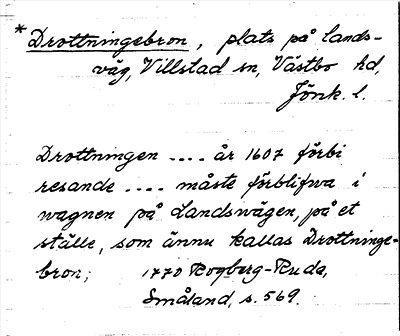 * Drottningebron, plats på lands-
väg, Villstad sn, Västbo hd,
Jönk. l.
Drottningen .... år 1607 förbi
resande .... måste förblifwa i
wagnen på Landswägen, på et
ställe, som ännu kallas Drottninge-
bron; 1770 Rogberg-Ruda,
Småland, s. 569.